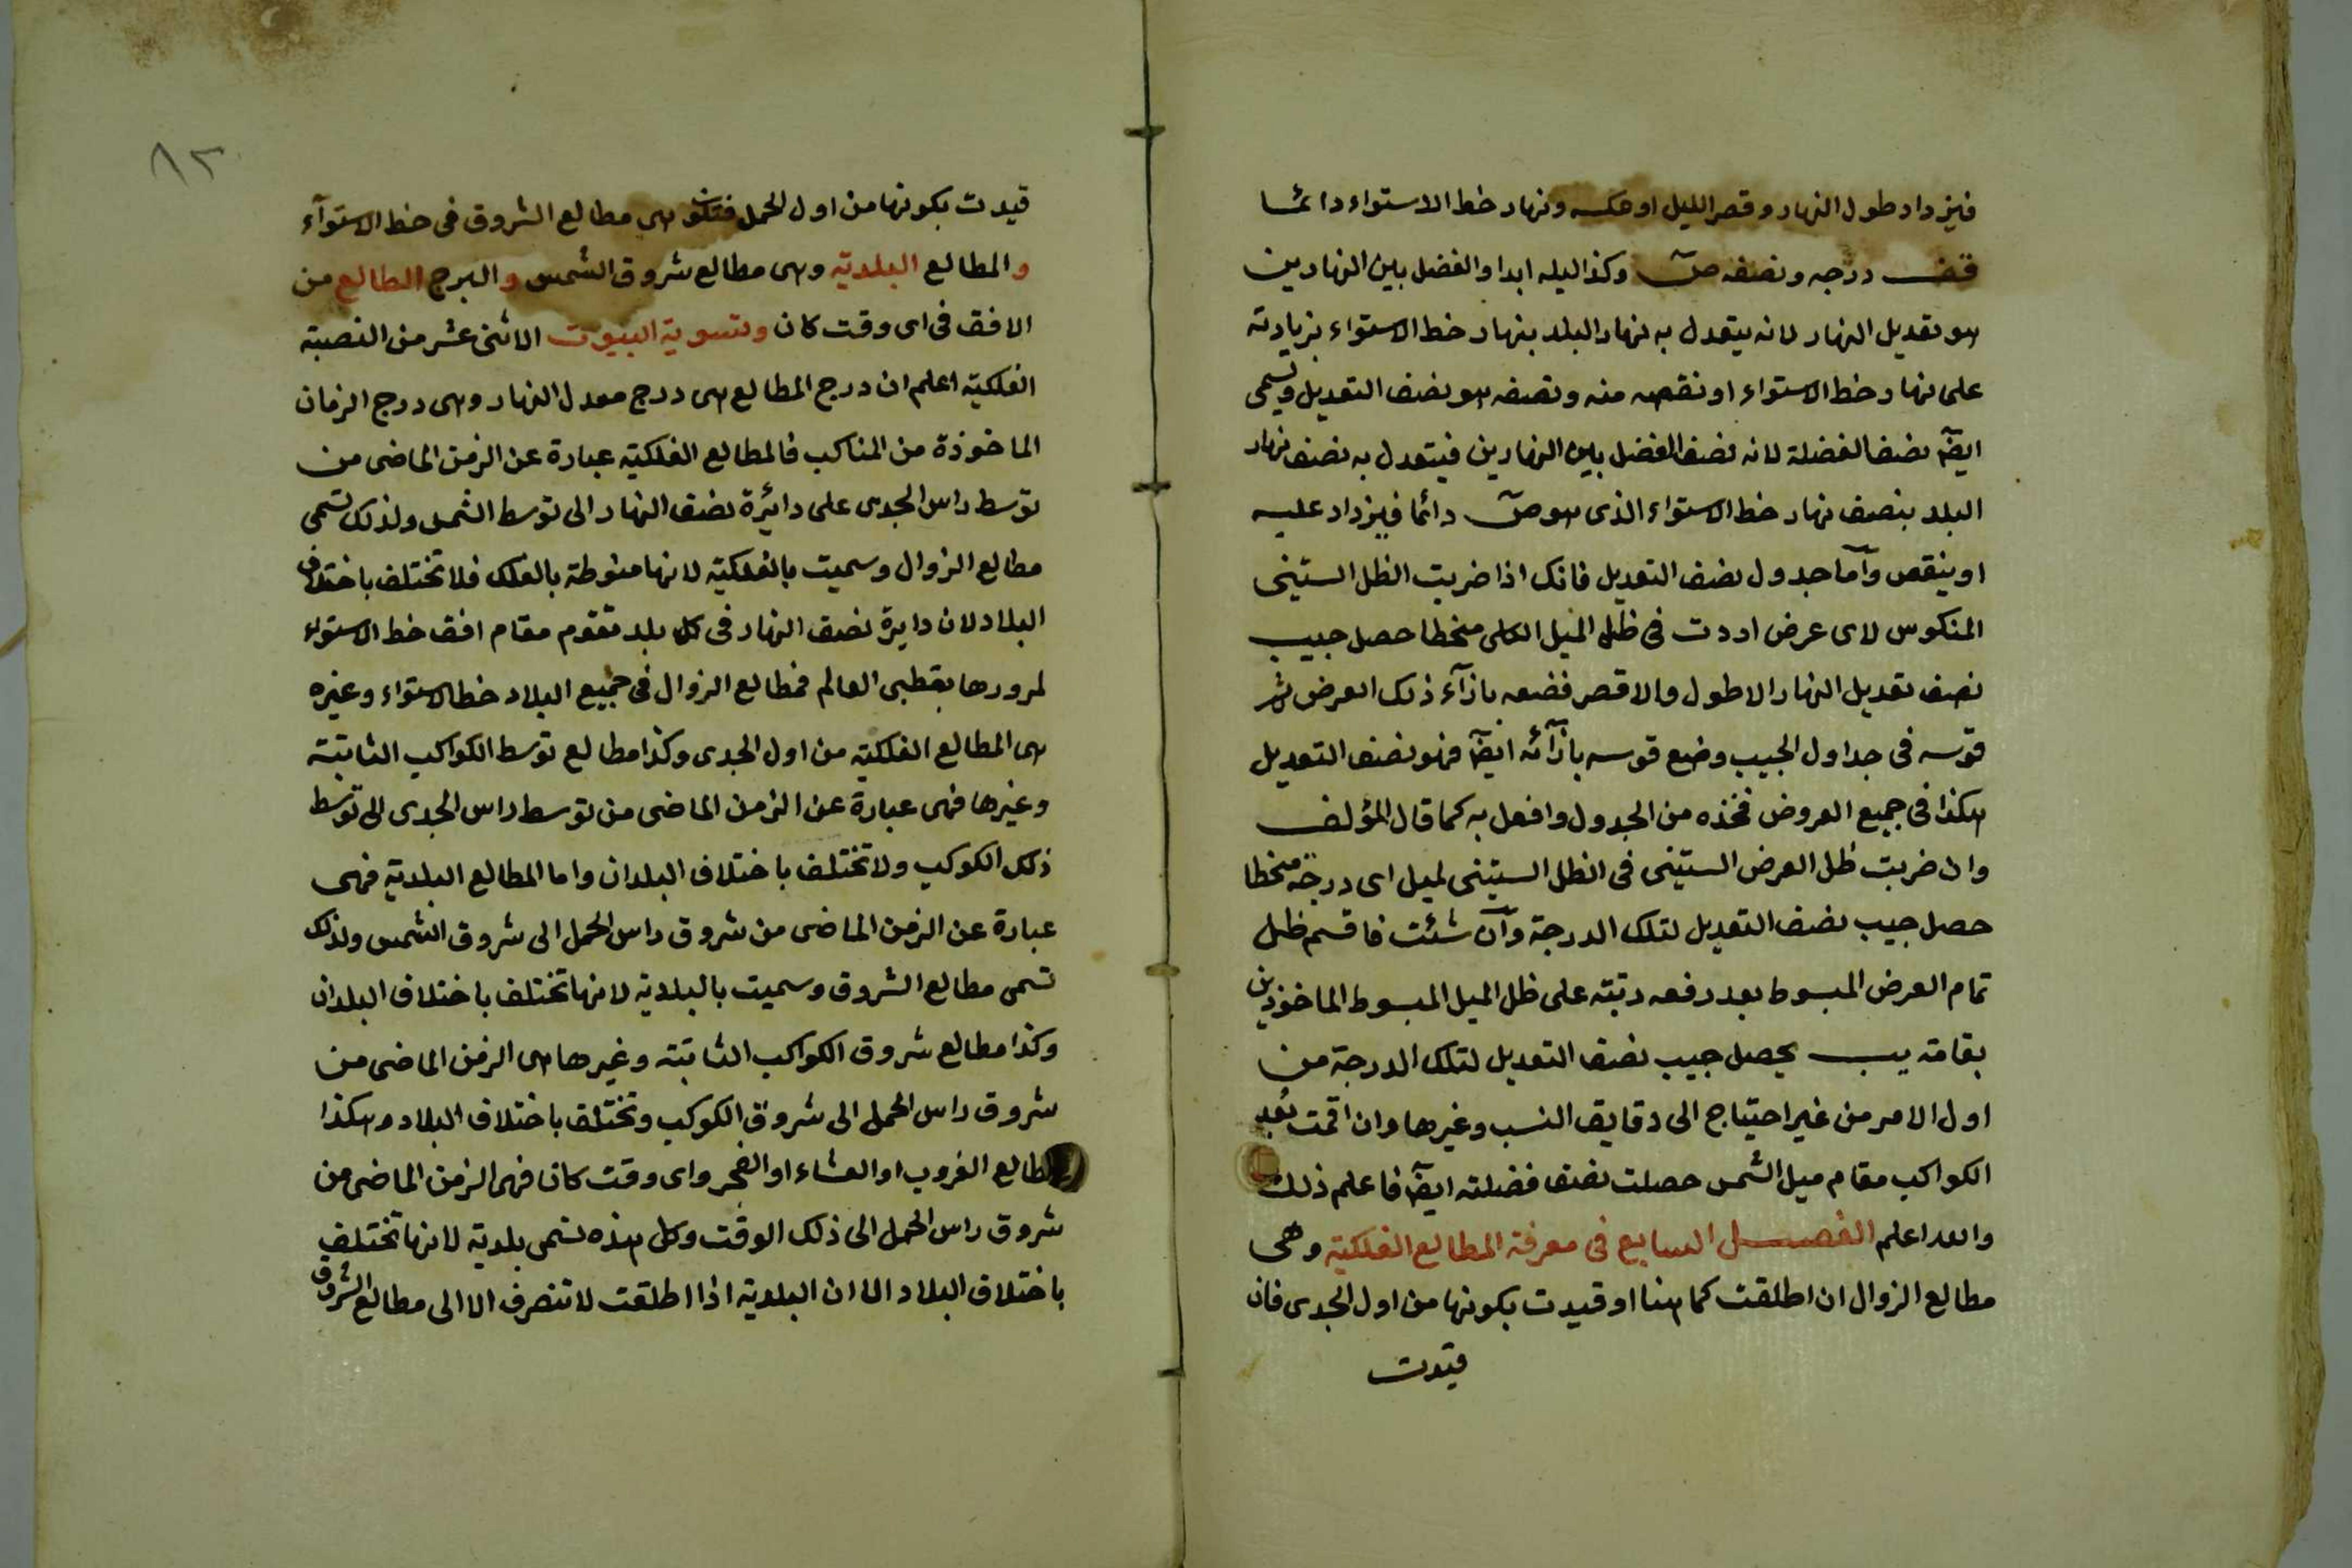 فيزداد طول النهار وقصر الليل او عكسه ونهار خط الاستواء دائما
قف درجه ونصفه ص وكذا ليله ابدا والفضل بين النهارين
هو تعديل النهار لانه يتعدل به نهار البلد بنهار خط الاستواء بزيادته
على نهار خط الاستواء او نقصه منه ونصفه هو نصف التعديل ويسمى
ايضا نصف الفضلة لانه نصف الفضل بين النهارين فيتعدل به نصف نهار
البلد بنصف نهار خط الاستواء الذى هو ص دائما فيزداد عليه
او ينقص وآما جدول نصف التعديل فانك اذا ضربت الظل الستينى
المنكوس لاى عرض اردت فى ظل الميل الكلى منحطا حصل جيب
نصف تعديل النهار الاطول والاقصر فضعه بازآء ذلك العرض ثم
قوسه فى جداول الجيب وضع قوسه بازآئه ايضا فهو نصف التعديل
هكذا فى جميع العروض فخذه من الجدول وافعل به كما قال المؤلف
وان ضربت ظل العرض الستينى فى الظل الستينى لميل اى درجة منحطا
حصل جيب نصف التعديل لتلك الدرجة وآن شئت فاقسم ظل
تمام العرض المبسوط بعد رفعه رتبته على ظل الميل المبسوط الماخوذين
بقامة يب يحصل جيب نصف التعديل لتلك الدرجة من
اول الامر من غير احتياج الى دقايق النسب وغيرها وان اقمت بُعد
الكواكب مقام ميل الشمس حصلت نصف فضلته ايضا فاعلم ذلك
والله اعلم الفصـــل السابع فى معرفة المطالع الفلكية وهى
مطالع الزوال ان اطلقت كما هنا او قيدت بكونها من اول الجدى فان
قيدت
٨٢
قيدت بكونها من اول الحمل فتكون هى مطالع الشروق فى خط الاستوآء
والمطالع البلدية وهى مطالع شروق الشمس والبرج الطالع من
الافق فى اى وقت كان وتسوية البيوت الاثنى عشر من النصبة
الفلكيه اعلم ان درج المطالع هى درج معدل النهار وهى درج الزمان
الماخوذة من المناكب فالمطالع الفلكيه عبارة عن الزمن الماضى من
توسط راس الجدى على دائرة نصف النهار الى توسط الشمس ولذلك تسمى
مطالع الزوال وسميت بالفلكيه لانها منوطة بالفلك فلا تختلف باختلاف
البلاد لان دايرة نصف النهار فى كل بلد تقوم مقام افق خط الاستواء
لمرورها بقطبى العالم فمطالع الزوال فى جميع البلاد خط الاستواء وغيره
هى المطالع الفلكيه من اول الجدى وكذا مطالع توسط الكواكب الثابتة
وغيرها فهى عبارة عن الزمن الماضى من توسط راس الجدى الى توسط
ذلك الكوكب ولا تختلف باختلاف البلدان واما المطالع البلدية فهى
عبارة عن الزمن الماضى من شروق راس الحمل الى شروق الشمس ولذلك
تسمى مطالع الشروق وسميت بالبلدية لانها تختلف باختلاف البلدان
وكذا مطالع شروق الكواكب الثابتة وغيرها هى الزمن الماضى من
شروق راس الحمل الى شروق الكوكب وتختلف باختلاف البلاد وهكذا
مطالع الغروب او العشاء او الفجر واى وقت كان فهى الزمن الماضى من
شروق راس الحمل الى ذلك الوقت وكل هذه تسمى بلدية لانها تختلف
باختلاف البلاد الا ان البلدية اذا اطلقت لا تنصرف الا الى مطالع الشروق